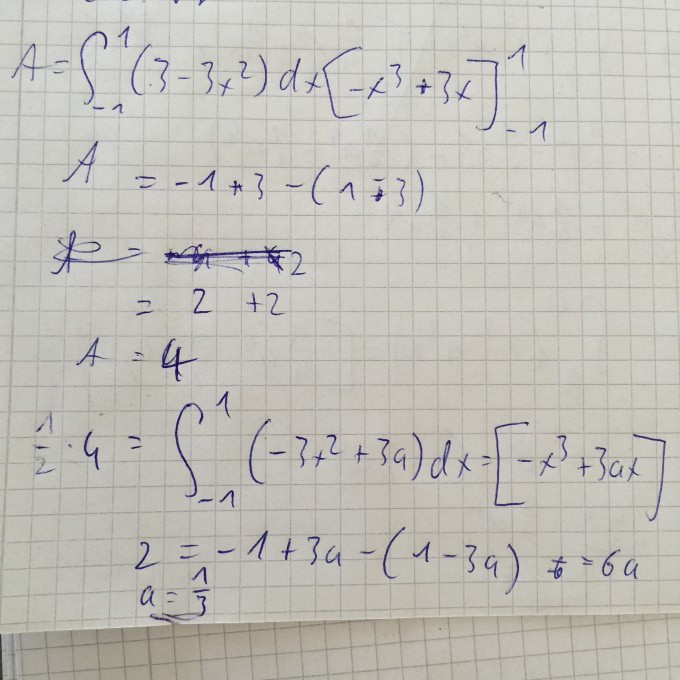 A = ∫₋₁¹ (3 - 3x²) dx [-x³ + 3x]₋₁¹
A = -1 + 3 - (1 - 3)
= 2
= 2 + 2
A = 4
1/2 · 4 = ∫₋₁¹ (-3x² + 3a) dx = [-x³ + 3ax]
2 = -1 + 3a - (1 - 3a) = 6a
a = 1/3